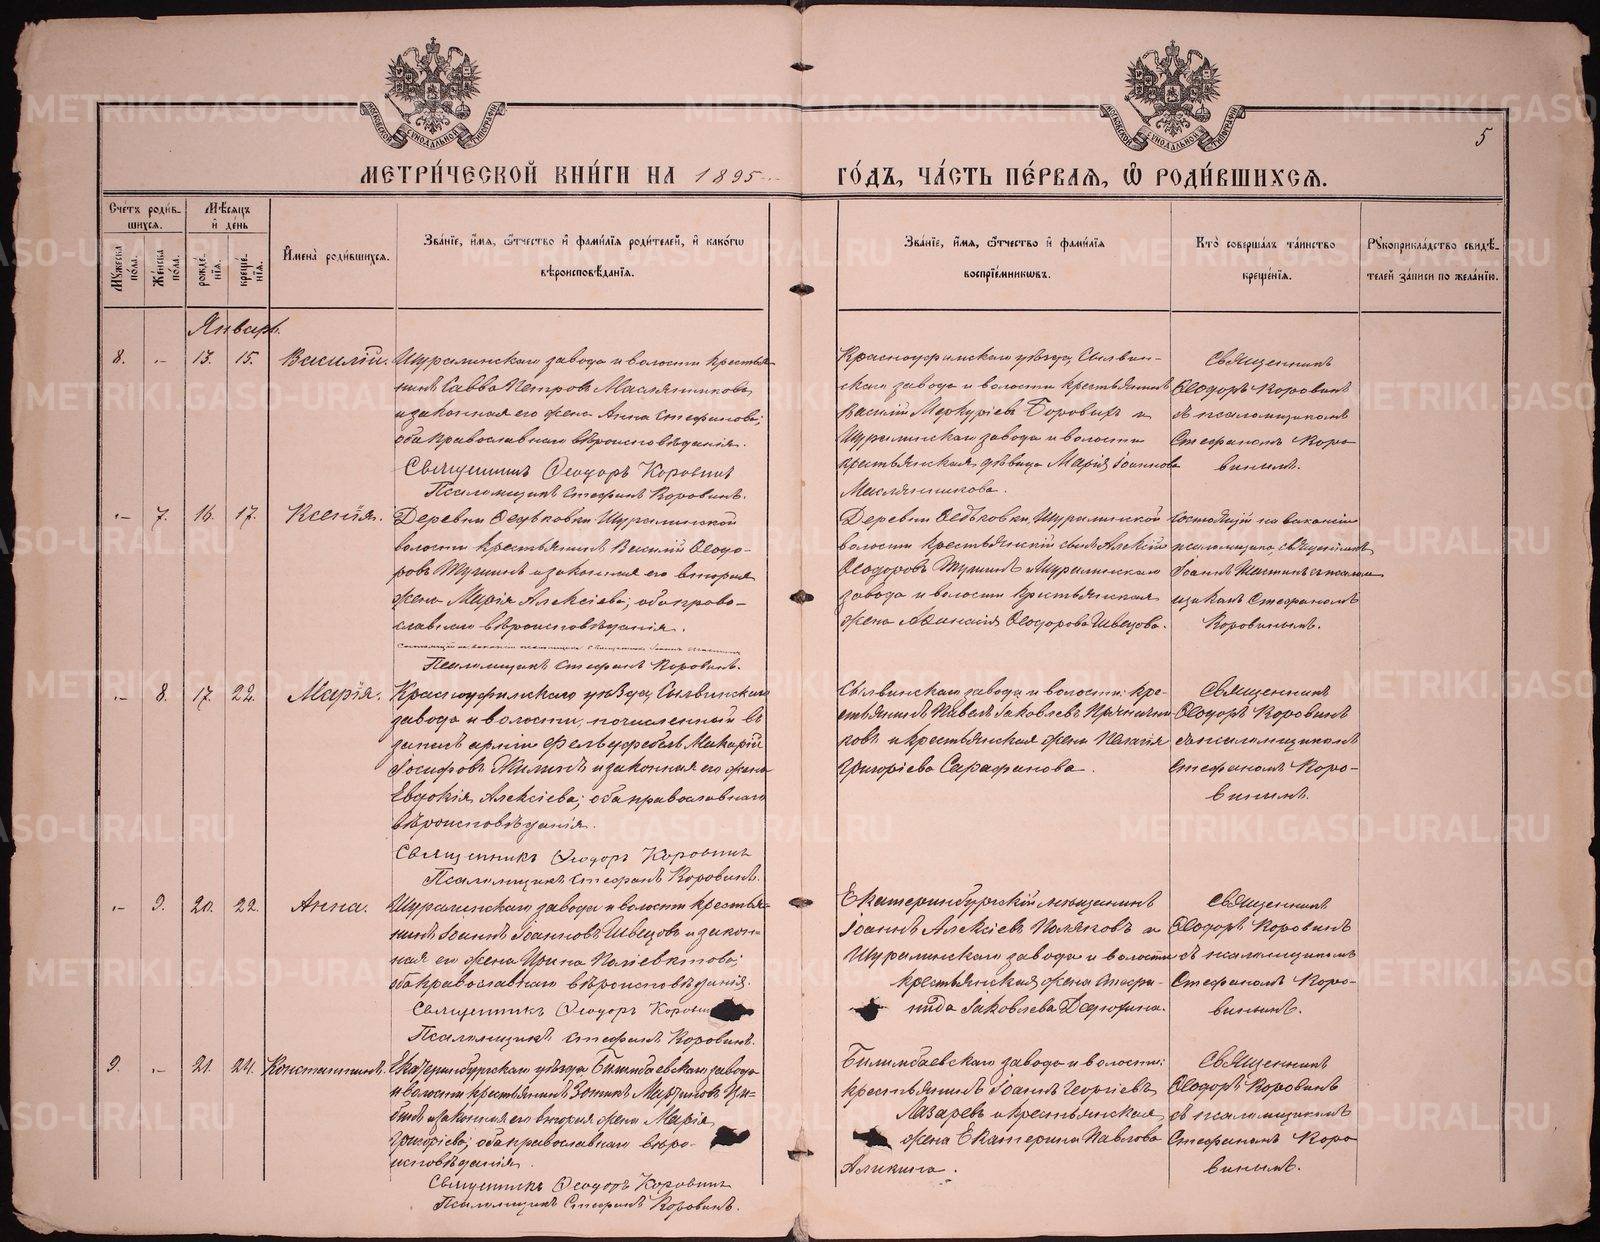 МОСКОВСКОЙ СѴНОДАЛЬНОЙ ТИПОГРАФІИ
МОСКОВСКОЙ СѴНОДАЛЬНОЙ ТИПОГРАФІИ
5
МЕТРИ́ЧЕСКОЙ КНИ́ГИ НА 1895 ГО́ДЪ, ЧА́СТЬ ПЕ́РВАЯ, Ѡ РОДИ́ВШИХСЯ.
Сче́тъ роди́вшихся.
Мѣ́сяцъ и де́нь
Му́жеска по́ла.
Же́нска по́ла.
рожде́нія.
креще́нія.
Имена̀ роди́вшихся.
Зва́ніе, и́мя, ѻ҆́тчество и҆ фами́лія роди́телей, и҆ како́гѡ
вѣроисповѣ́данія.
Зва́ніе, и́мя, ѻ҆́тчество и҆ фами́лія
воспріе́мниковъ.
Кто̀ соверша́лъ та́инство
креще́нія.
Рꙋкоприкла́дство свидѣ́-
телей за́писи по жела́нію.
Январь.
8. „— 13. 15. Василій.
Шуралинскаго завода и волости крестья-
нинъ Савва Петровъ Маслянниковъ
и законная его жена Анна Стефанова;
оба православнаго вѣроисповѣданія.
Священникъ Ѳеодоръ Коровинъ
Псаломщикъ Стефанъ Коровинъ.
Красноуфимскаго уѣзда, Сылвин-
скаго завода и волости крестьянинъ
Василій Меркуріевъ Боровыхъ и
Шуралинскаго завода и волости
крестьянская дѣвица Марія Іоаннова
Маслянникова.
Священникъ
Ѳеодоръ Коровинъ
съ псаломщикомъ
Стефаномъ Коро-
винымъ.
„— 7. 16. 17. Ксенія.
Деревни Ѳедьковки, Шуралинской
волости крестьянинъ Василій Ѳеодо-
ровъ и законная его вторая
жена Марія Алексіева; оба право-
славнаго вѣроисповѣданія.
Состоящій на вакансіи псаломщика священникъ Іоаннъ
Псаломщикъ Стефанъ Коровинъ.
Деревни Ѳедьковки, Шуралинской
волости крестьянскій сынъ Алексій
Ѳеодоровъ и Шуралинскаго
завода и волости крестьянская
жена Аѳанасія Ѳеодорова Швецова.
Состоящій на вакансіи
псаломщика священникъ
Іоаннъ съ псалом-
щикомъ Стефаномъ
Коровинымъ.
„— 8. 17. 22. Марія.
Красноуфимскаго уѣзда, Сылвинскаго
завода и волости, зачисленный въ
запасъ арміи фельдфебель Макарій
Іосифовъ Жилинъ и законная его жена
Евдокія Алексіева; оба православнаго
вѣроисповѣданія.
Священникъ Ѳеодоръ Коровинъ
Псаломщикъ Стефанъ Коровинъ.
Сылвинскаго завода и волости: кре-
стьянинъ Павелъ Іаковлевъ
и крестьянская жена Пелагія
Григоріева Сарафанова.
Священникъ
Ѳеодоръ Коровинъ
съ псаломщикомъ
Стефаномъ Коро-
винымъ.
„— 9. 20. 22. Анна.
Шуралинскаго завода и волости крестья-
нинъ Іоаннъ Іоанновъ Швецовъ и закон-
ная его жена Ирина Поліевктова;
оба православнаго вѣроисповѣданія.
Священникъ Ѳеодоръ Корови
Псаломщикъ Стефанъ Коровинъ.
Екатеринбургскій мѣщанинъ
Іоаннъ Алексіевъ Поляковъ и
Шуралинскаго завода и волости
крестьянская жена
Іаковлева Дедюхина.
Священникъ
Ѳеодоръ Коровинъ
съ псаломщикомъ
Стефаномъ Коро-
винымъ.
9. „— 21. 24. Константинъ.
Екатеринбургскаго уѣзда, Билимбаевскаго завода
и волости крестьянинъ Зотикъ
и законная его вторая жена Марія
Григоріева; оба православнаго вѣро-
исповѣданія.
Священникъ Ѳеодоръ Коровинъ
Псаломщикъ Стефанъ Коровинъ.
Билимбаевскаго завода и волости:
крестьянинъ Іоаннъ Георгіевъ
Лазаревъ и крестьянская
жена Екатерина Павлова
Аликина.
Священникъ
Ѳеодоръ Коровинъ
съ псаломщикомъ
Стефаномъ Коро-
винымъ.
METRIKI.GASO-URAL.RU